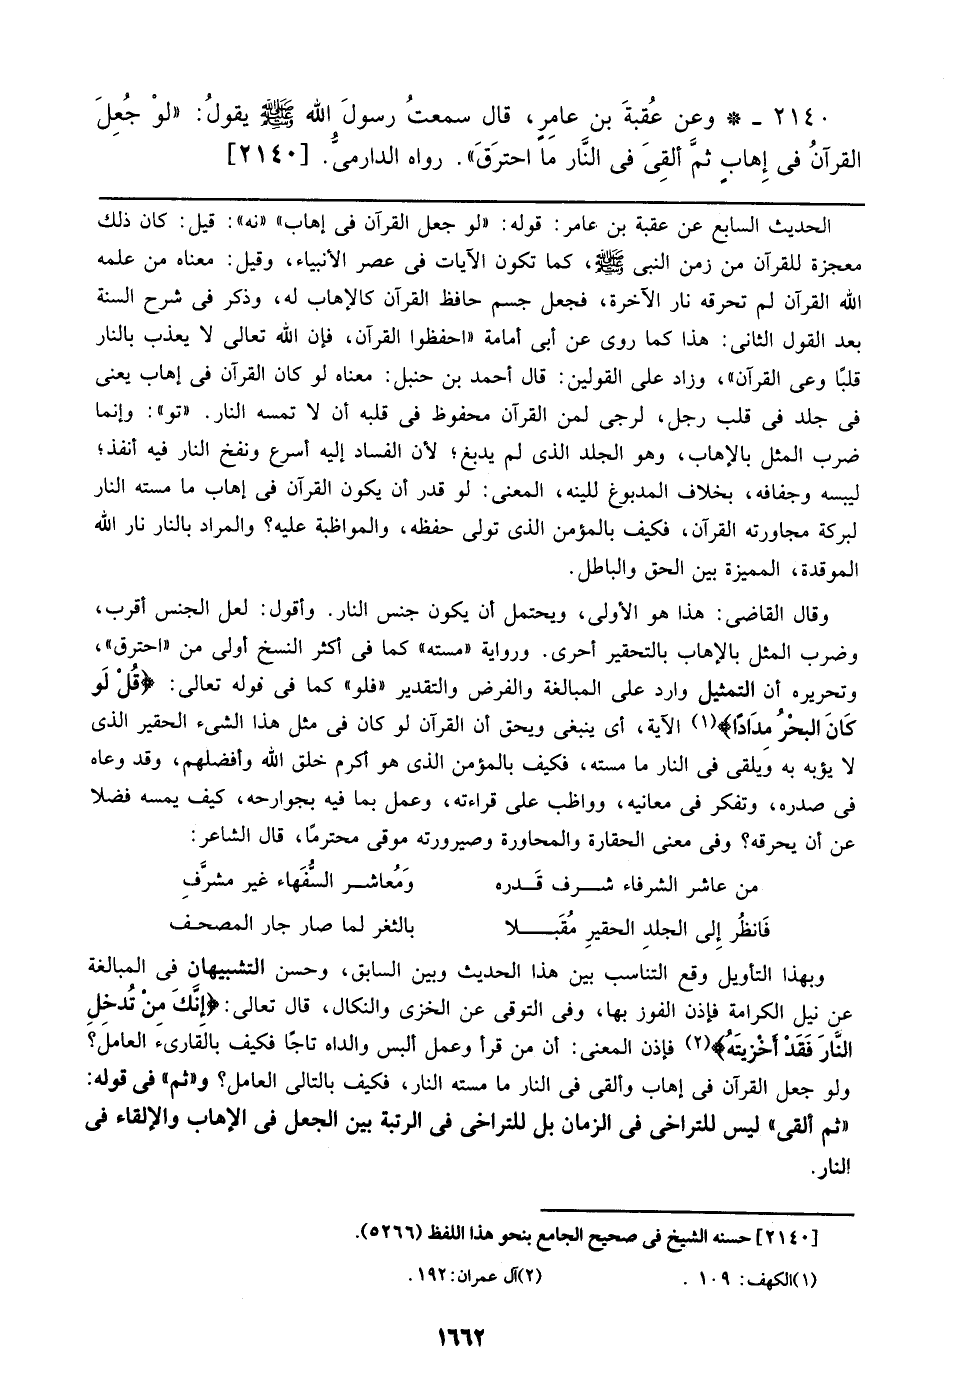 ٢١٤٠ ـ * وعن عُقبةَ بن عامرٍ، قال سمعتُ رسولَ الله ﷺ يقولُ: «لوْ جُعِلَ
القرآنُ فى إِهابٍ ثمَّ أُلقِىَ فى النَّار ما احترَقَ». رواه الدارمىُّ. [٢١٤٠]
الحديث السابع عن عقبة بن عامر: قوله: «لو جعل القرآن فى إهاب» «نه»: قيل: كان ذلك
معجزة للقرآن من زمن النبى ﷺ، كما تكون الآيات فى عصر الأنبياء، وقيل: معناه من علمه
الله القرآن لم تحرقه نار الآخرة، فجعل جسم حافظ القرآن كالإهاب له، وذكر فى شرح السنة
بعد القول الثانى: هذا كما روى عن أبى أمامة «احفظوا القرآن، فإن الله تعالى لا يعذب بالنار
قلبًا وعى القرآن»، وزاد على القولين: قال أحمد بن حنبل: معناه لو كان القرآن فى إهاب يعنى
فى جلد فى قلب رجل، لرجى لمن القرآن محفوظ فى قلبه أن لا تمسه النار. «تو»: وإنما
ضرب المثل بالإهاب، وهو الجلد الذى لم يدبغ؛ لأن الفساد إليه أسرع ونفخ النار فيه أنفذ؛
ليبسه وجفافه، بخلاف المدبوغ للينه، المعنى: لو قدر أن يكون القرآن فى إهاب ما مسته النار
لبركة مجاورته القرآن، فكيف بالمؤمن الذى تولى حفظه، والمواظبة عليه؟ والمراد بالنار نار الله
الموقدة، المميزة بين الحق والباطل.
وقال القاضى: هذا هو الأولى، ويحتمل أن يكون جنس النار. وأقول: لعل الجنس أقرب،
وضرب المثل بالإهاب بالتحقير أحرى. ورواية «مسته» كما فى أكثر النسخ أولى من «احترق»،
وتحريره أن التمثيل وارد على المبالغة والفرض والتقدير «فلو» كما فى قوله تعالى: ﴿قُلْ لَو
كَانَ البحْرُ مِدَادًا﴾(١) الآية، أى ينبغى ويحق أن القرآن لو كان فى مثل هذا الشىء الحقير الذى
لا يؤبه به ويلقى فى النار ما مسته، فكيف بالمؤمن الذى هو أكرم خلق الله وأفضلهم، وقد وعاه
فى صدره، وتفكر فى معانيه، وواظب على قراءته، وعمل بما فيه بجوارحه، كيف يمسه فضلا
عن أن يحرقه؟ وفى معنى الحقارة والمحاورة وصيرورته موقى محترمًا، قال الشاعر:
من عاشر الشرفاء شـــرف قَــدره وَمُعاشــر السُّفَهاء غير مشرَّفِ
فَانظُر إِلى الجلدِ الحقيرِ مُقَبــــلا بالثغر لما صار جار المصحـف
وبهذا التأويل وقع التناسب بين هذا الحديث وبين السابق، وحسن التشبيهان فى المبالغة
عن نيل الكرامة فإذن الفوز بها، وفى التوقى عن الخزى والنكال، قال تعالى: ﴿إِنَّكَ مِنْ تُدخلِ
النَّارَ فَقَدْ أَخْزيتَهُ﴾(٢) فإذن المعنى: أن من قرأ وعمل ألبس والداه تاجًا فكيف بالقارىء العامل؟
ولو جعل القرآن فى إهاب وألقى فى النار ما مسته النار، فكيف بالتالى العامل؟ و«ثم» فى قوله:
«ثم ألقى» ليس للتراخى فى الزمان بل للتراخى فى الرتبة بين الجعل فى الإهاب والإلقاء فى
النار.
[٢١٤٠] حسنه الشيخ فى صحيح الجامع بنحو هذا اللفظ (٥٢٦٦).
(١)الكهف: ١٠٩ . (٢)آل عمران: ١٩٢.
١٦٦٢